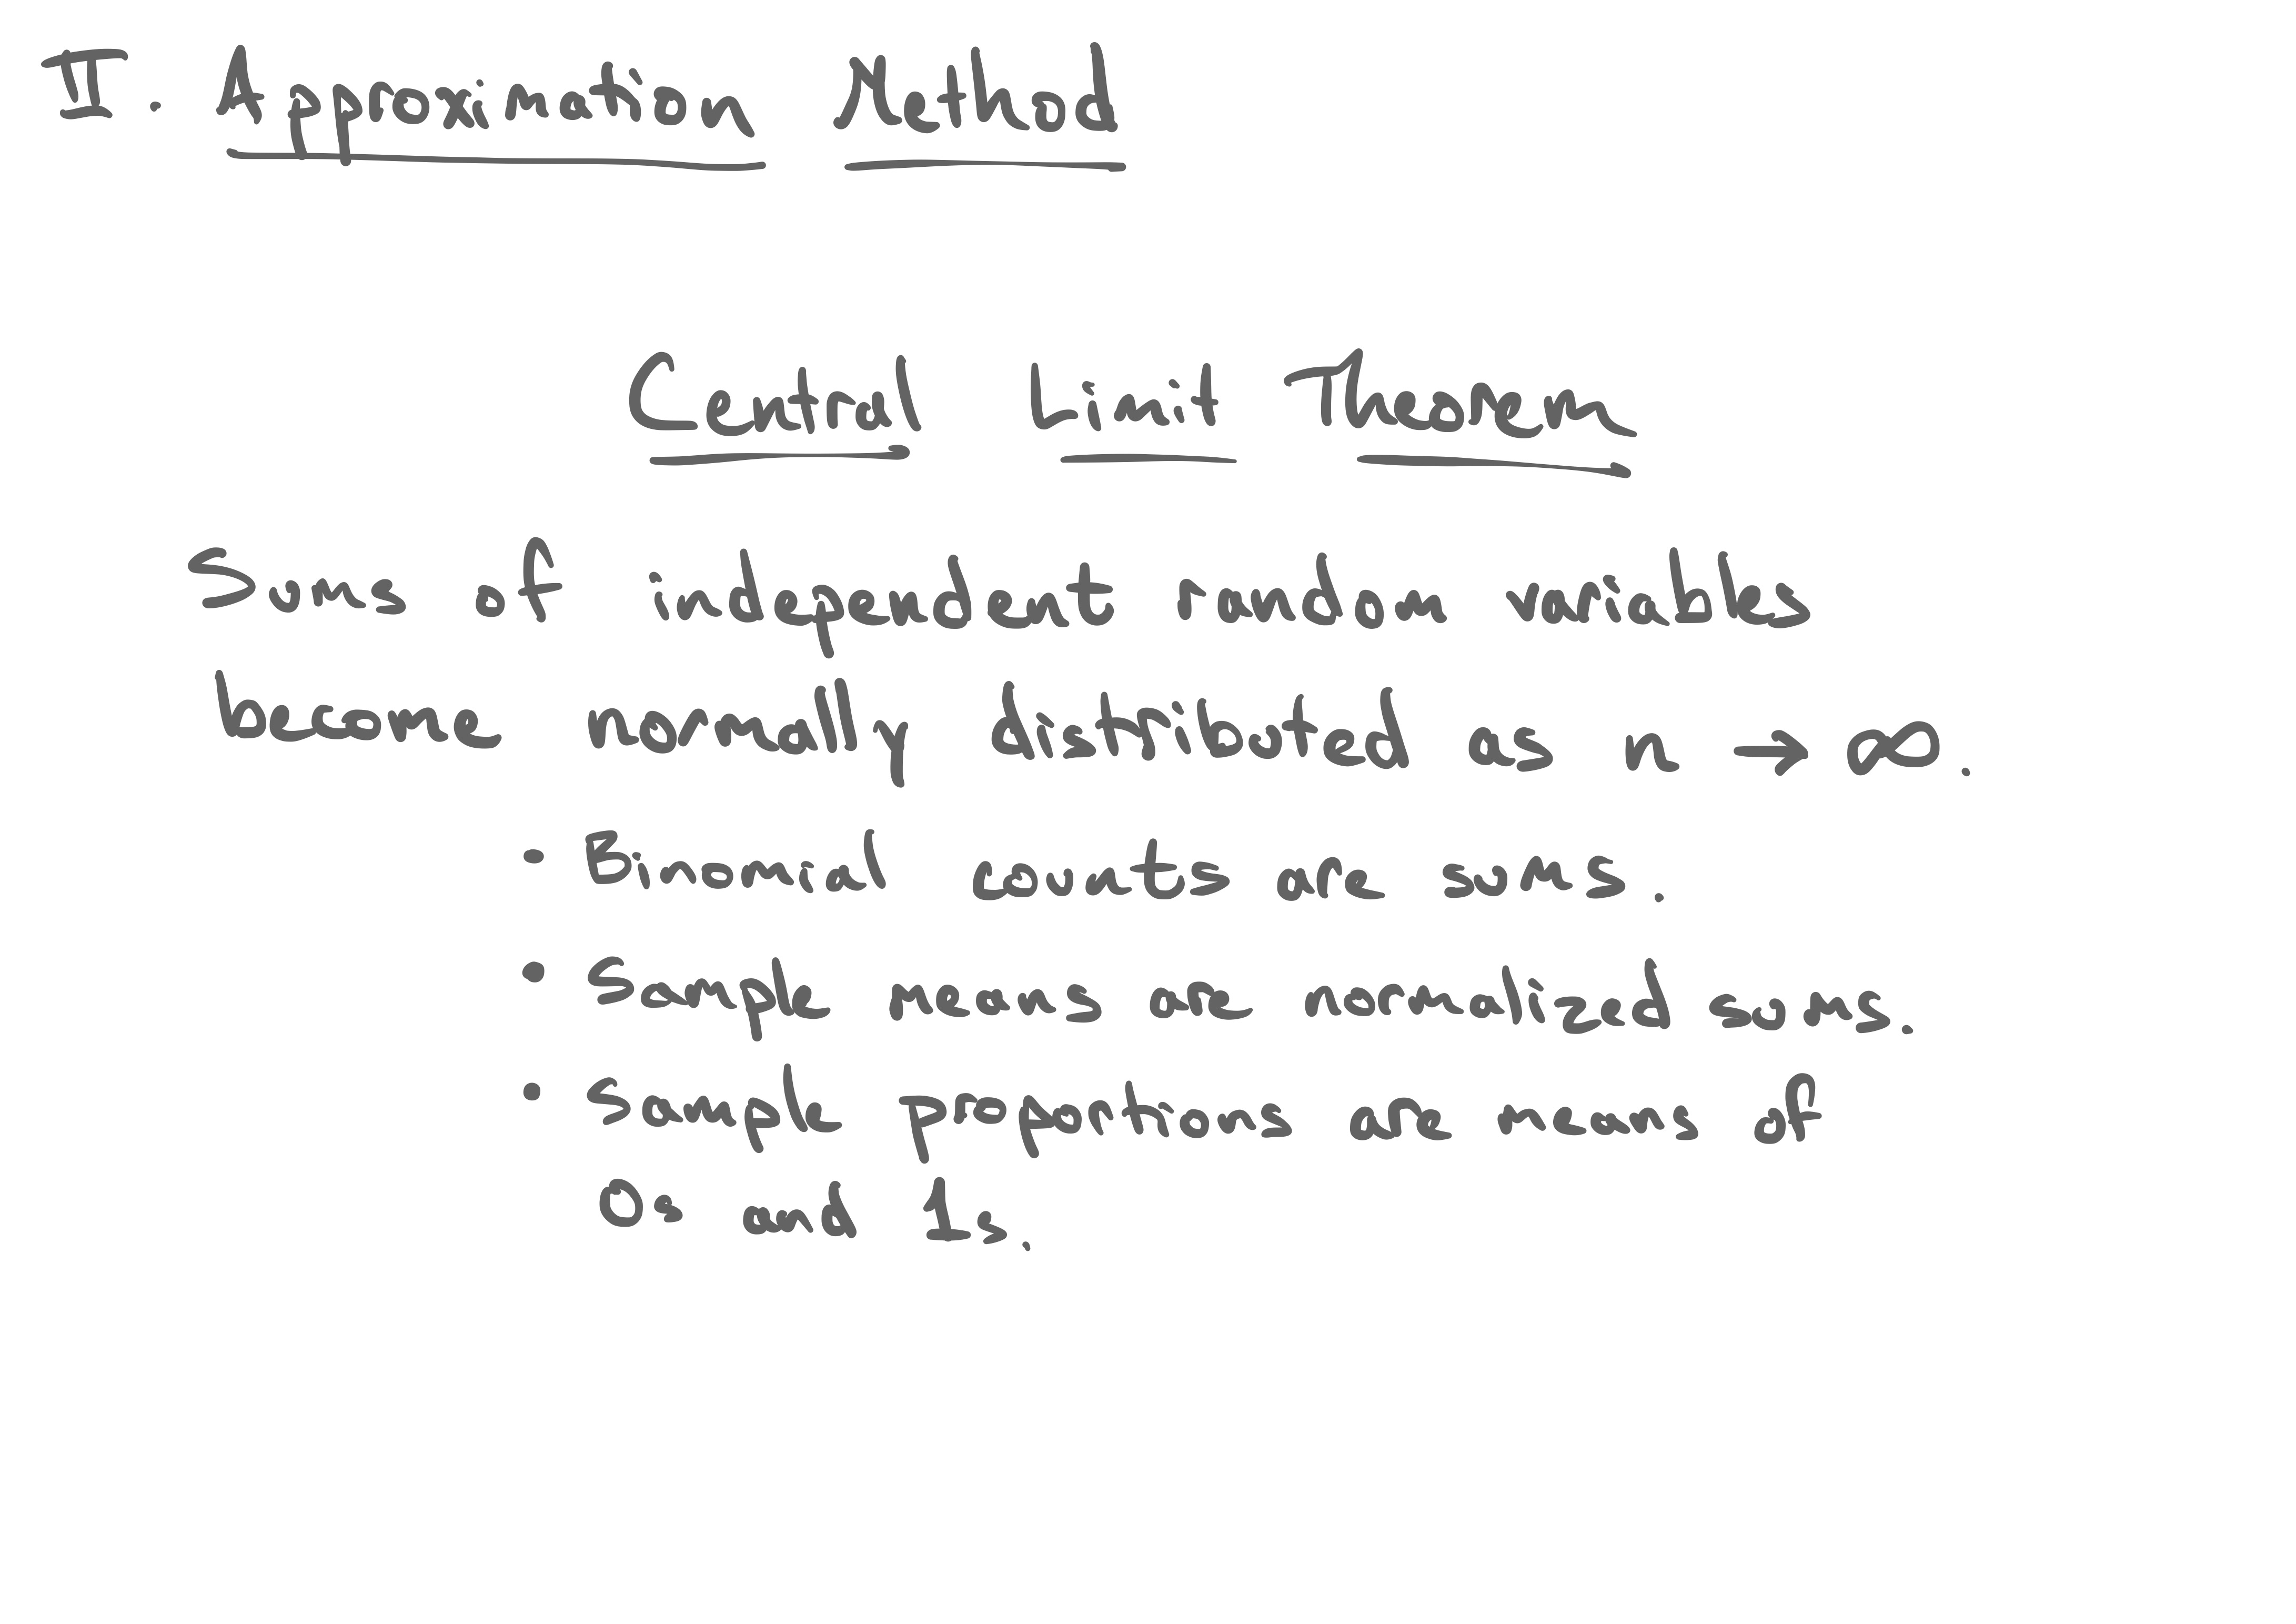 II. Approximation Method
Central Limit Theorem
Sums of independent random variables
become normally distributed as n → ∞.
• Binomial counts are sums.
• Sample means are normalized sums.
• Sample proportions are means of
0s and 1s.